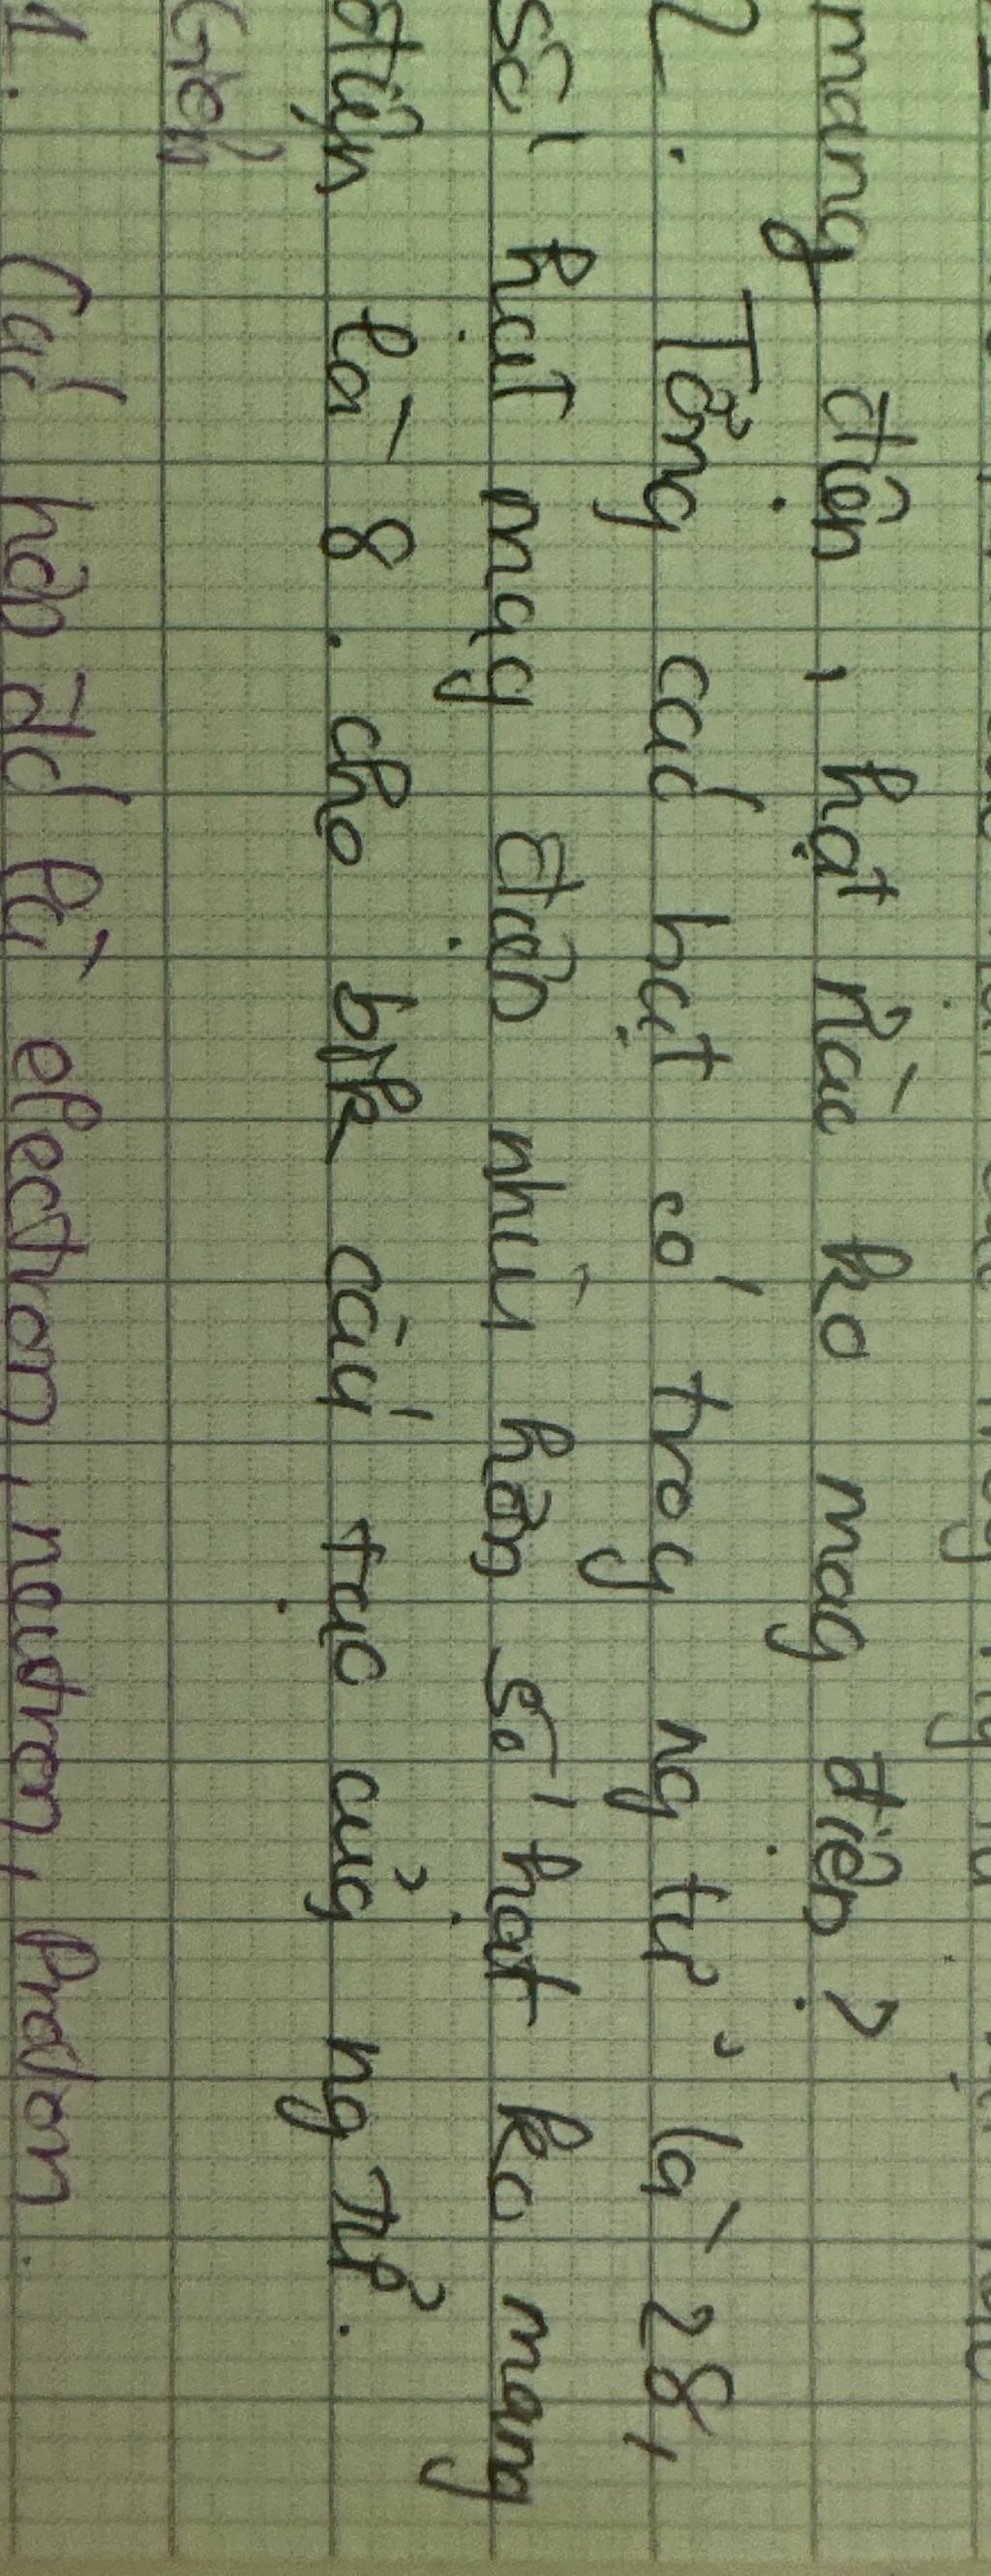 mang điện, hạt nào ko mag điện?
2. Tổng các hạt có trog ng tử là 28,
số hạt mag điện nhìu hơn số hạt ko mang
điện là 8. cho bik cấu tạo củg ng tử.
Giải
1. Các hạt đó là electron, neutron, Proton.